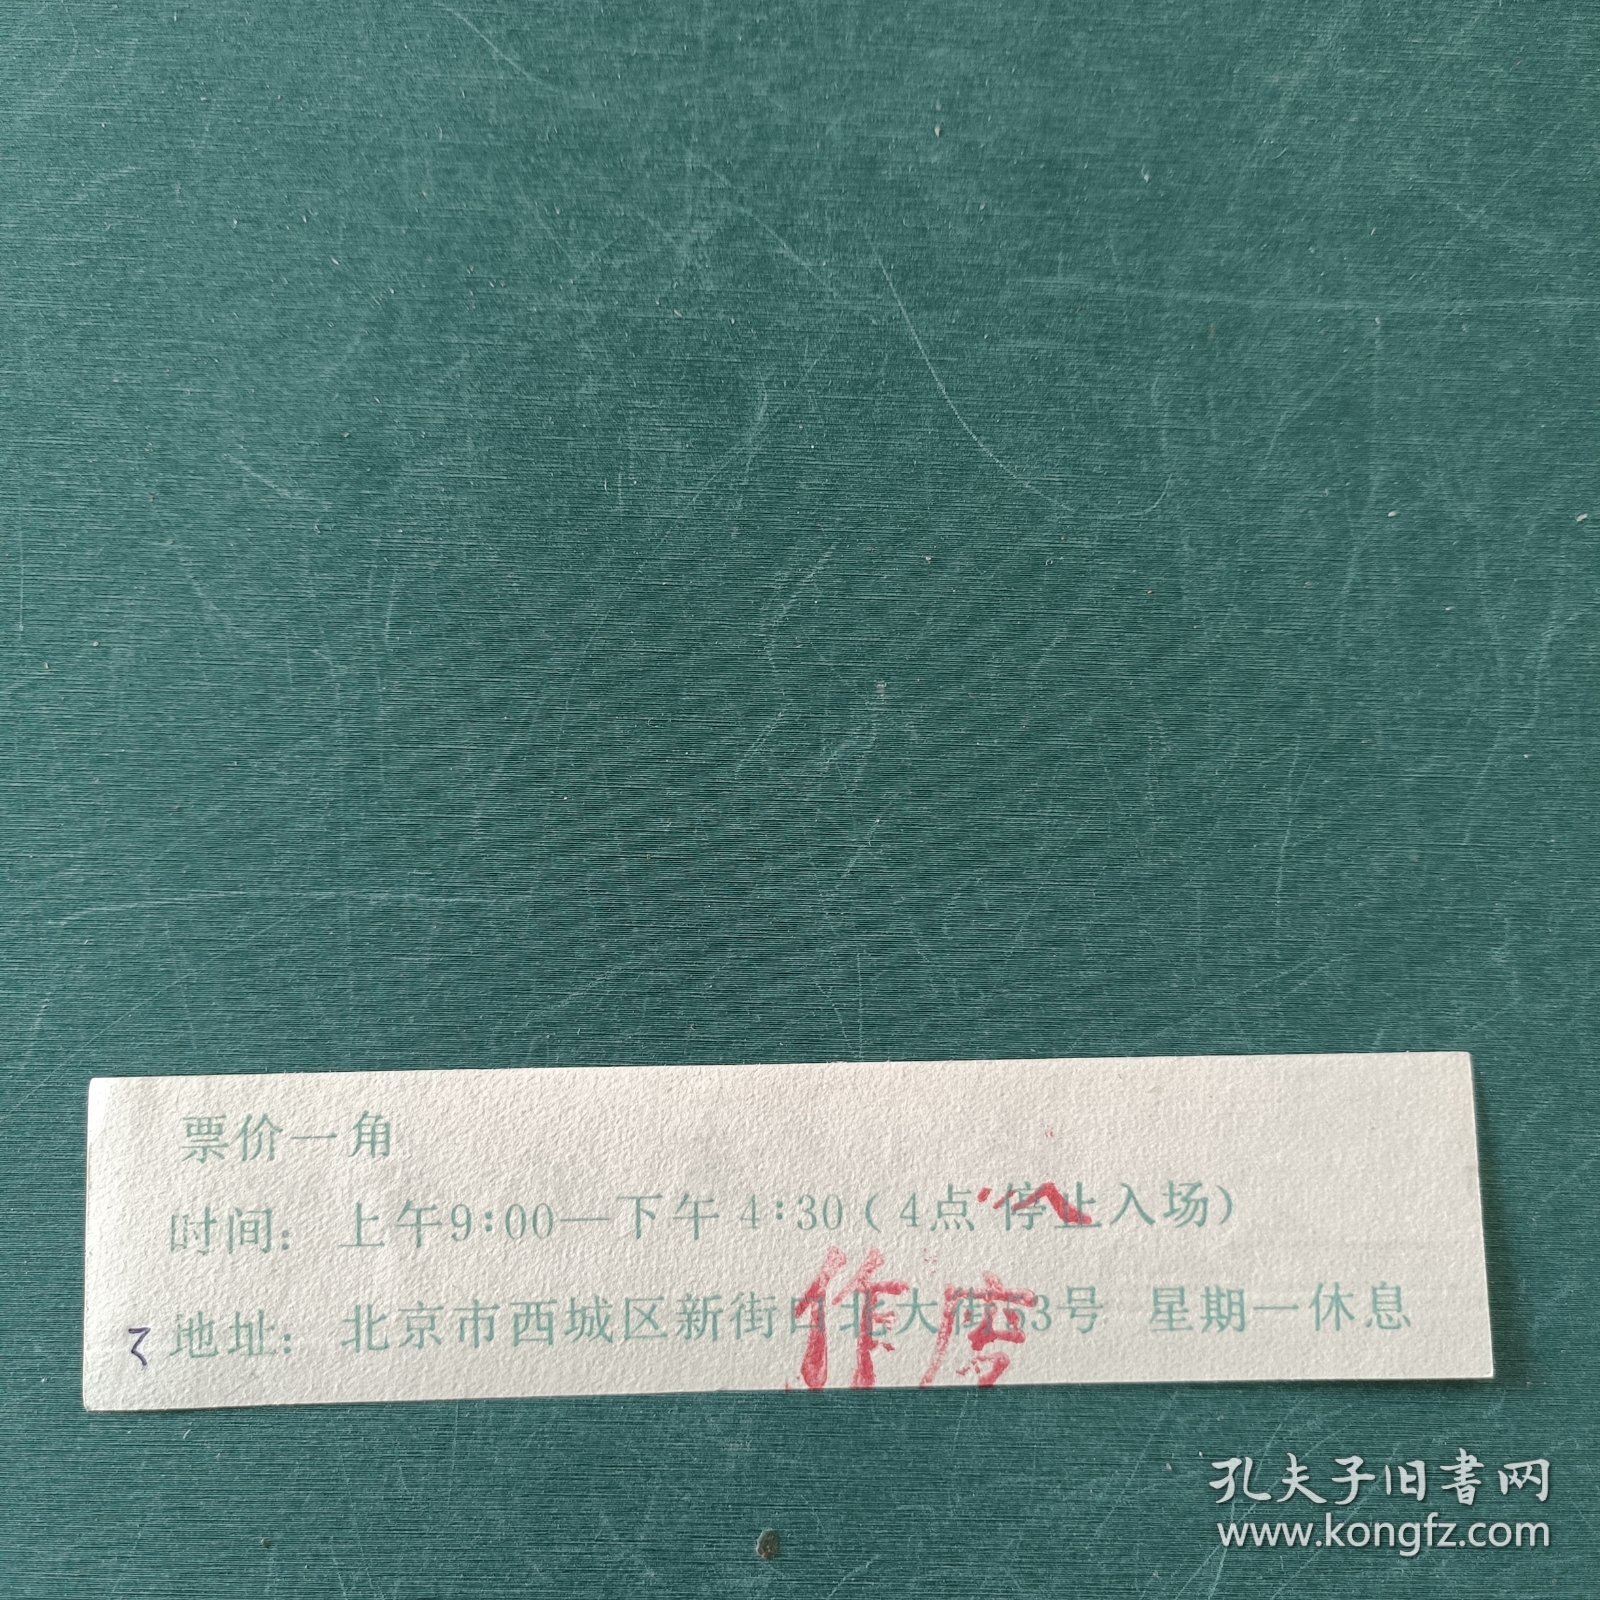 票价一角
时间：上午9:00—下午4:30（4点停止入场）
地址：北京市西城区新街口北大街53号 星期一休息
作废
孔夫子旧书网
www.kongfz.com